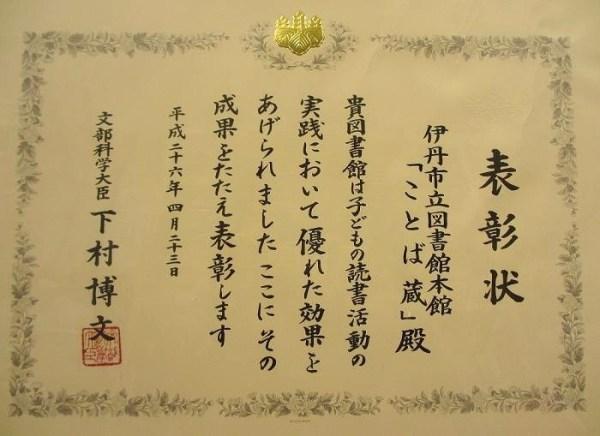 表彰状
伊丹市立図書館本館
「ことば蔵」殿
貴図書館は子どもの読書活動の
実践において優れた効果を
あげられました ここにその
成果をたたえ表彰します
平成二十六年四月二十三日
文部科学大臣 下村博文